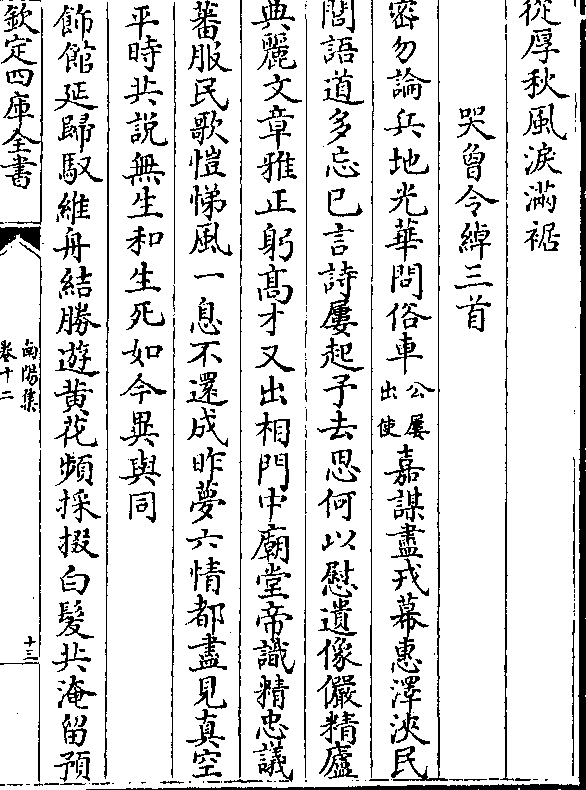 從厚秋風淚滿裾
哭曾令綽三首
密勿論兵地光華問俗車公屢出使嘉謀盡戎幕惠澤浹民
閭語道多忘已言詩屢起予去思何以慰遺像儼精廬
典麗文章雅正躬高才又出相門中廟堂帝識精忠議
蕃服民歌愷悌風一息不還成昨夢六情都盡見真空
平時共說無生和生死如今異與同
飾館延歸馭維舟結勝遊黄花頻採掇白髮共淹留預
欽定四庫全書
南陽集
卷十二
十三